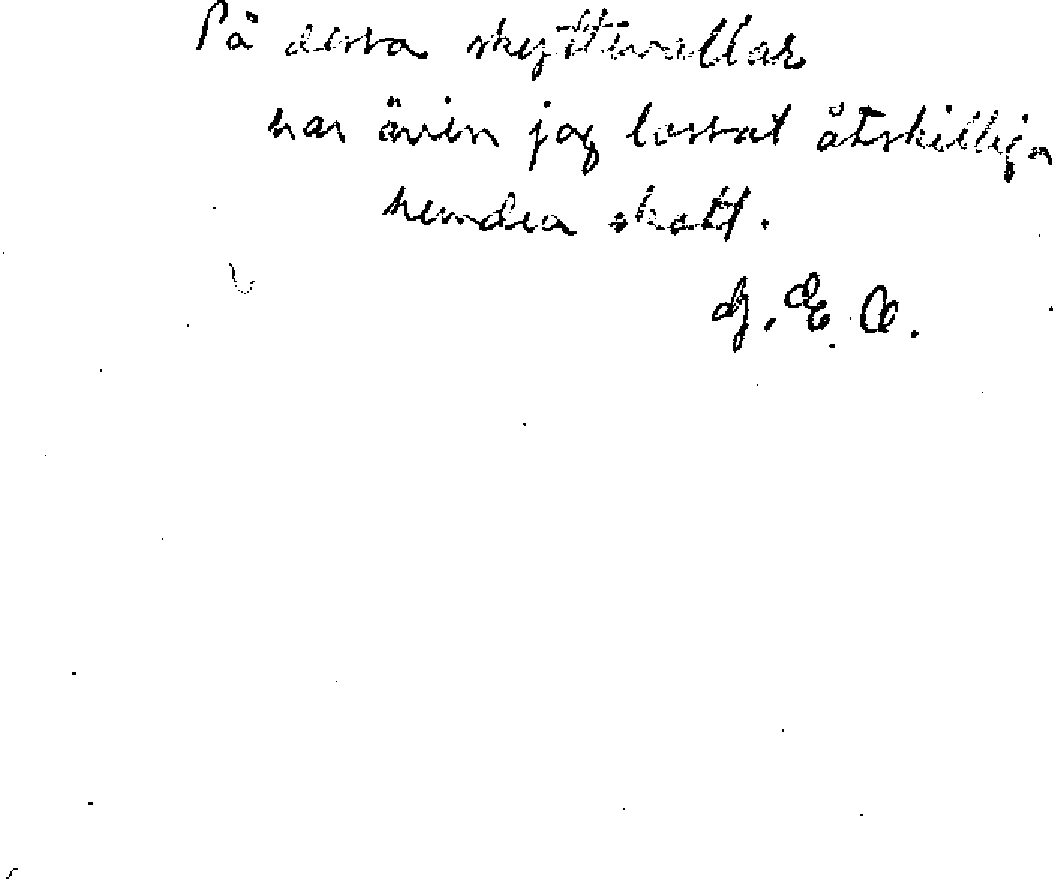 På dessa skyttevallar
har även jag lossat åtskilliga
hundra skott.
G. E. O.